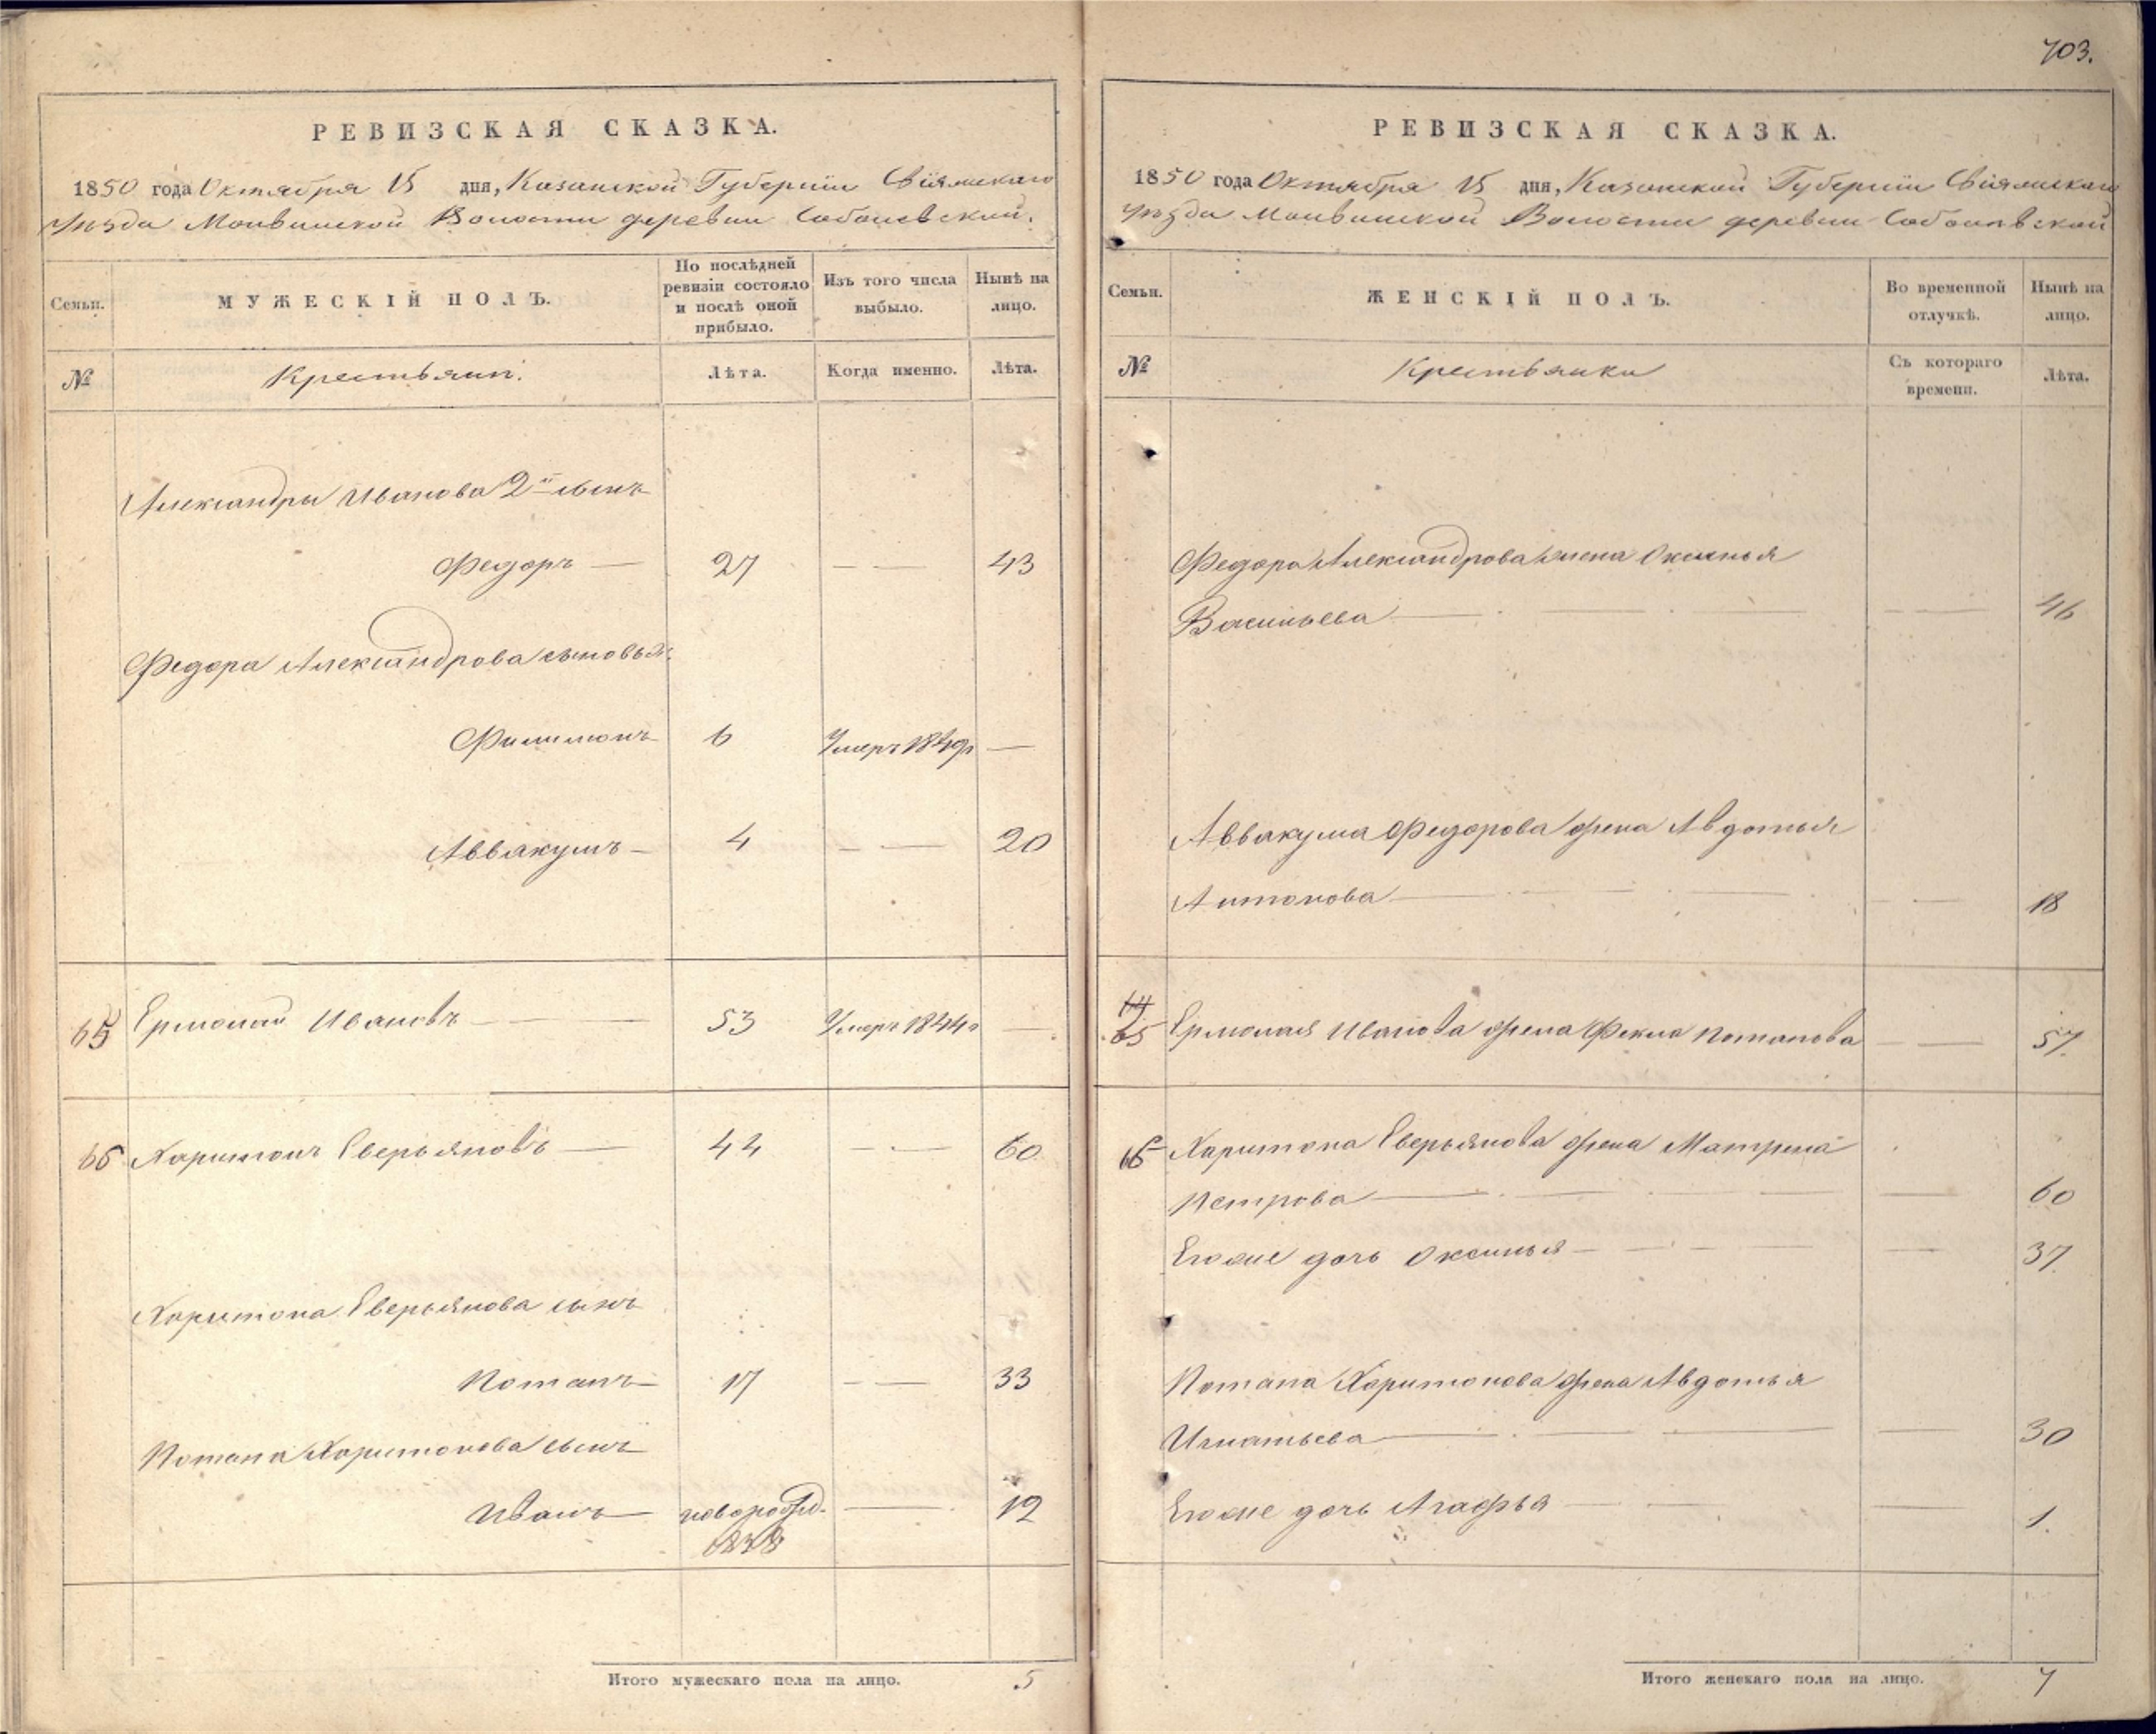 703.
РЕВИЗСКАЯ СКАЗКА.
1850 года Октября 15 дня, Казанской Губернiи Свiяжскаго
уѣзда Молвинской Волости деревни Соболевской.
Семьи.
МУЖЕСКIЙ ПОЛЪ.
По послѣдней ревизiи состояло и послѣ оной прибыло.
Изъ того числа выбыло.
Нынѣ на лицо.
№
Крестьяни.
Лѣта.
Когда именно.
Лѣта.
Александры Иванова 2й сынъ
Федоръ — 27 — — 43
Федора Александрова сыновья:
Филимонъ 6 Умеръ —
Аввакумъ — 4 — — 20
65 Ермолай Ивановъ — — 53 Умеръ 1844г —
66 Харитонъ Еверьяновъ — 44 — — 60
Харитона Еверьянова сынъ
Потапъ — 17 — — 33
Потапа Харитонова сынъ
Иванъ — новорожд. — 12
1838
Итого мужескаго пола на лицо. 5
РЕВИЗСКАЯ СКАЗКА.
1850 года Октября 15 дня, Казанской Губернiи Свiяжскаго
уѣзда Молвинской Волости деревни Соболевской
Семьи.
ЖЕНСКIЙ ПОЛЪ.
Во временной отлучкѣ.
Нынѣ на лицо.
№
Крестьянки
Съ котораго времени.
Лѣта.
Федора Александрова жена Оксинья
Васильева — — — — — 46
Аввакума Федорова жена Авдотья
Антонова — — — — — 18
64
65 Ермолая Иванова жена Фекла Потапова — — 57.
66 Харитона Еверьянова жена Матрена
Петрова — — — — — 60
Егоже дочь Оксинья — — — — 37.
Потапа Харитонова жена Авдотья
Игнатьева — — — — 30
Егоже дочь Агафья — — — 1.
Итого женскаго пола на лицо. 7